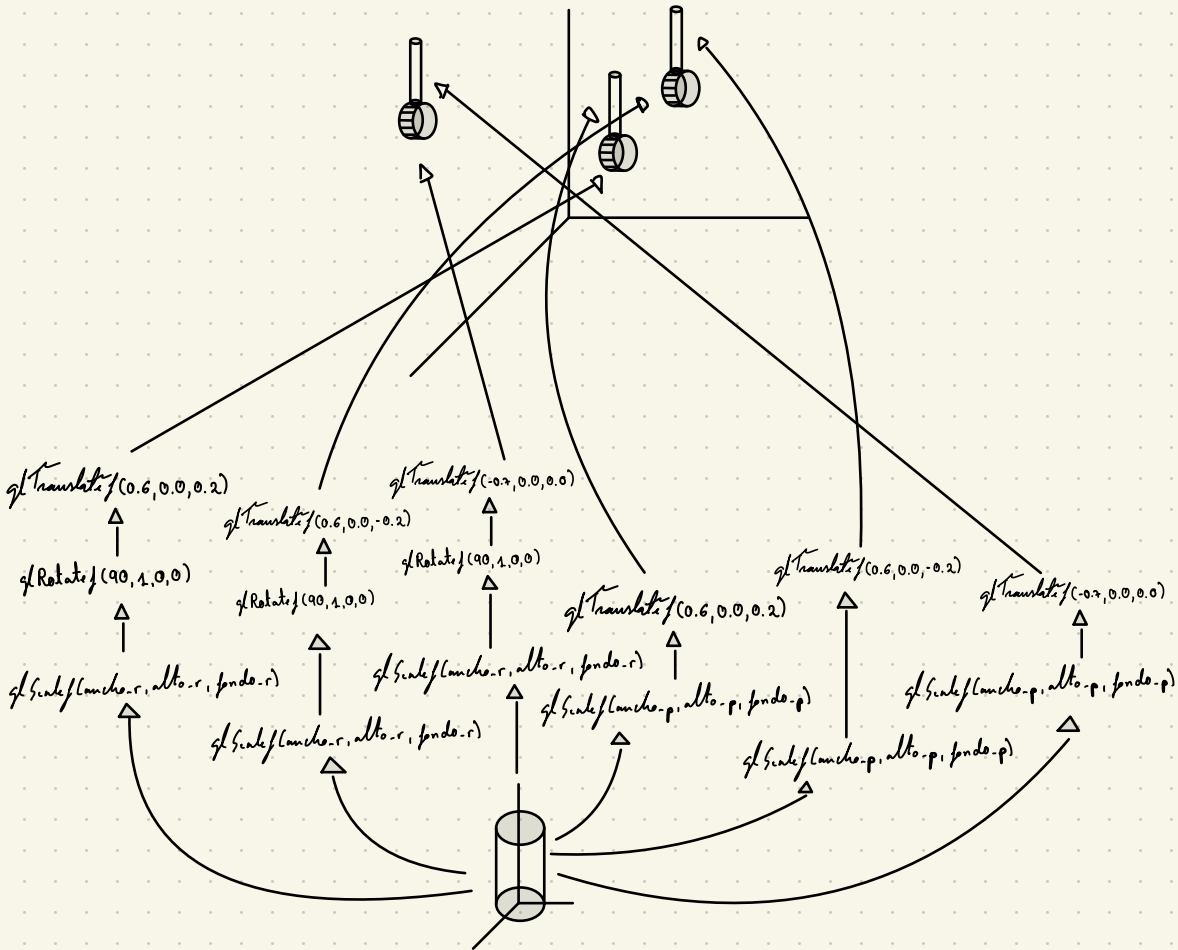 glTranslatef(0.6,0.0,0.2)
glRotatef(90,1,0,0)
glScalef(ancho_r, alto_r, fondo_r)
glTranslatef(0.6,0.0,-0.2)
glRotatef(90,1,0,0)
glScalef(ancho_r, alto_r, fondo_r)
glTranslatef(-0.7,0.0,0.0)
glRotatef(90,1,0,0)
glScalef(ancho_r, alto_r, fondo_r)
glTranslatef(0.6,0.0,0.2)
glScalef(ancho_p, alto_p, fondo_p)
glTranslatef(0.6,0.0,-0.2)
glScalef(ancho_p, alto_p, fondo_p)
glTranslatef(-0.7,0.0,0.0)
glScalef(ancho_p, alto_p, fondo_p)